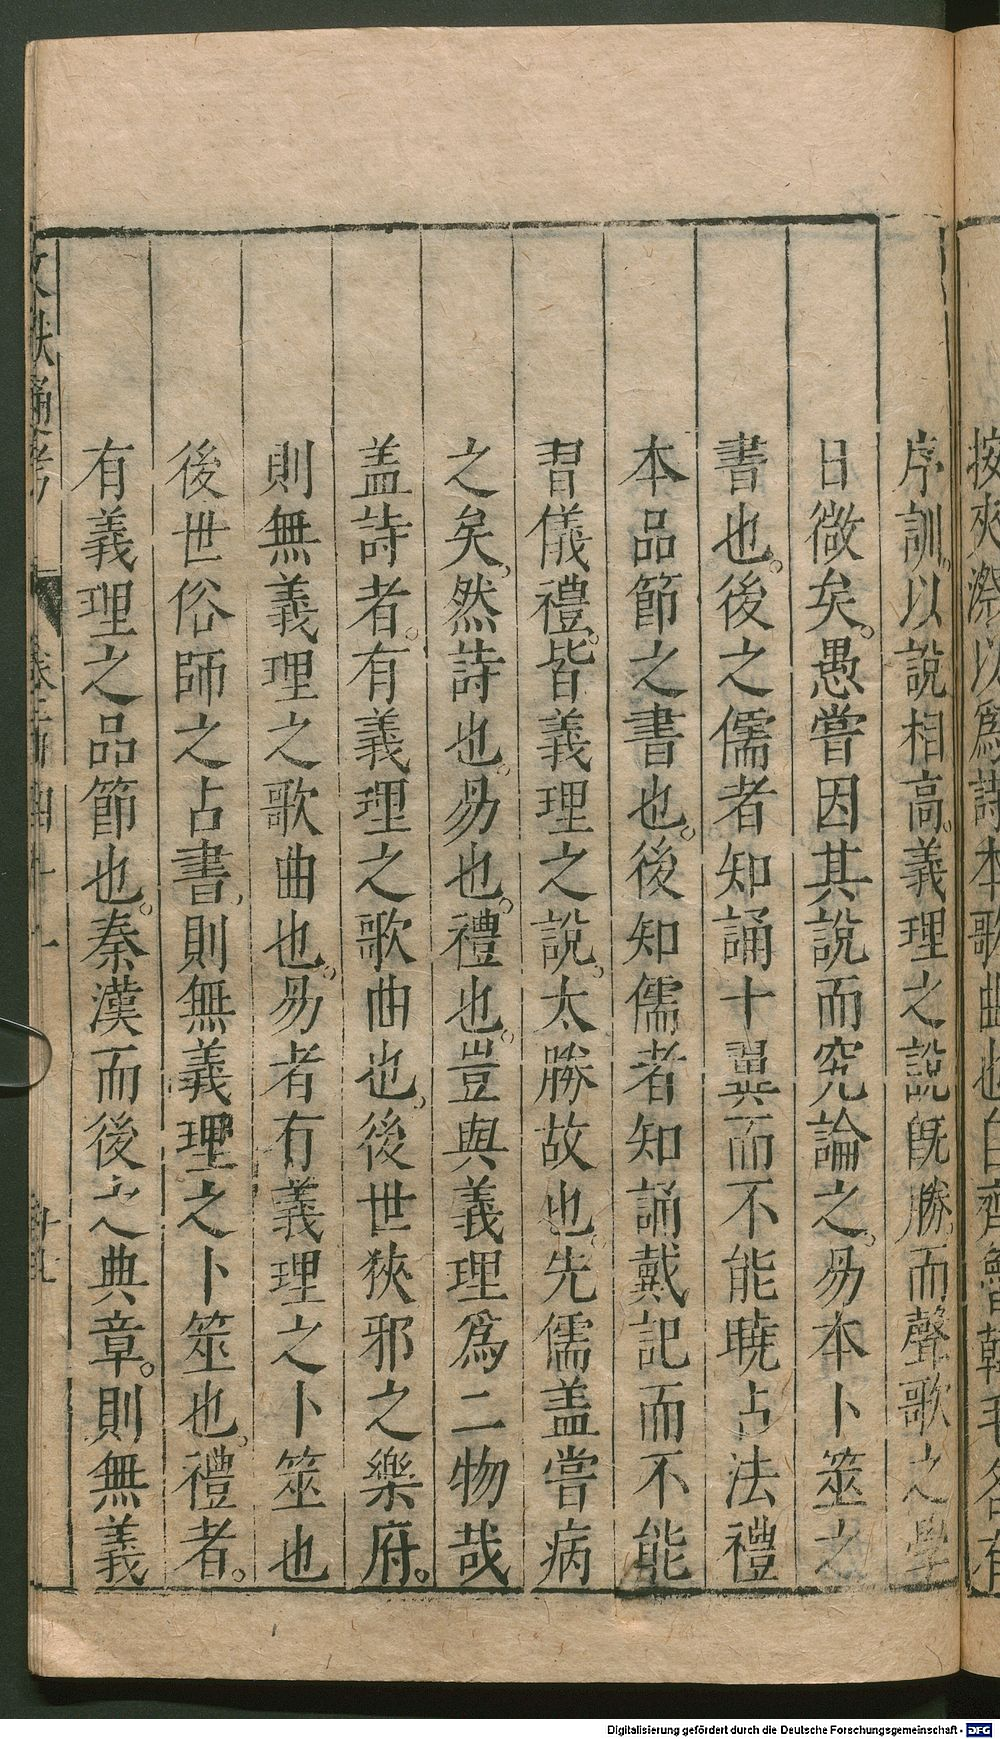 按夾漈以爲詩本歌曲也自齊魯韓毛各有
序訓。以說相高。義理之說既勝。而聲歌之學
日微矣。愚嘗因其說而究論之。易本卜筮之
書也。後之儒者知誦十翼而不能曉占法禮
本品節之書也。後知儒者知誦戴記而不能
習儀禮。皆義理之說。太勝故也。先儒盖嘗病
之矣。然詩也。易也。禮也。豈與義理爲二物哉
盖詩者。有義理之歌曲也。後世狹邪之樂府。
則無義理之歌曲也。易者有義理之卜筮也
後世俗師之占書。則無義理之卜筮也。禮者。
有義理之品節也。秦漢而後之典章。則無義
文獻通考
Digitalisierung gefördert durch die Deutsche Forschungsgemeinschaft - DFG